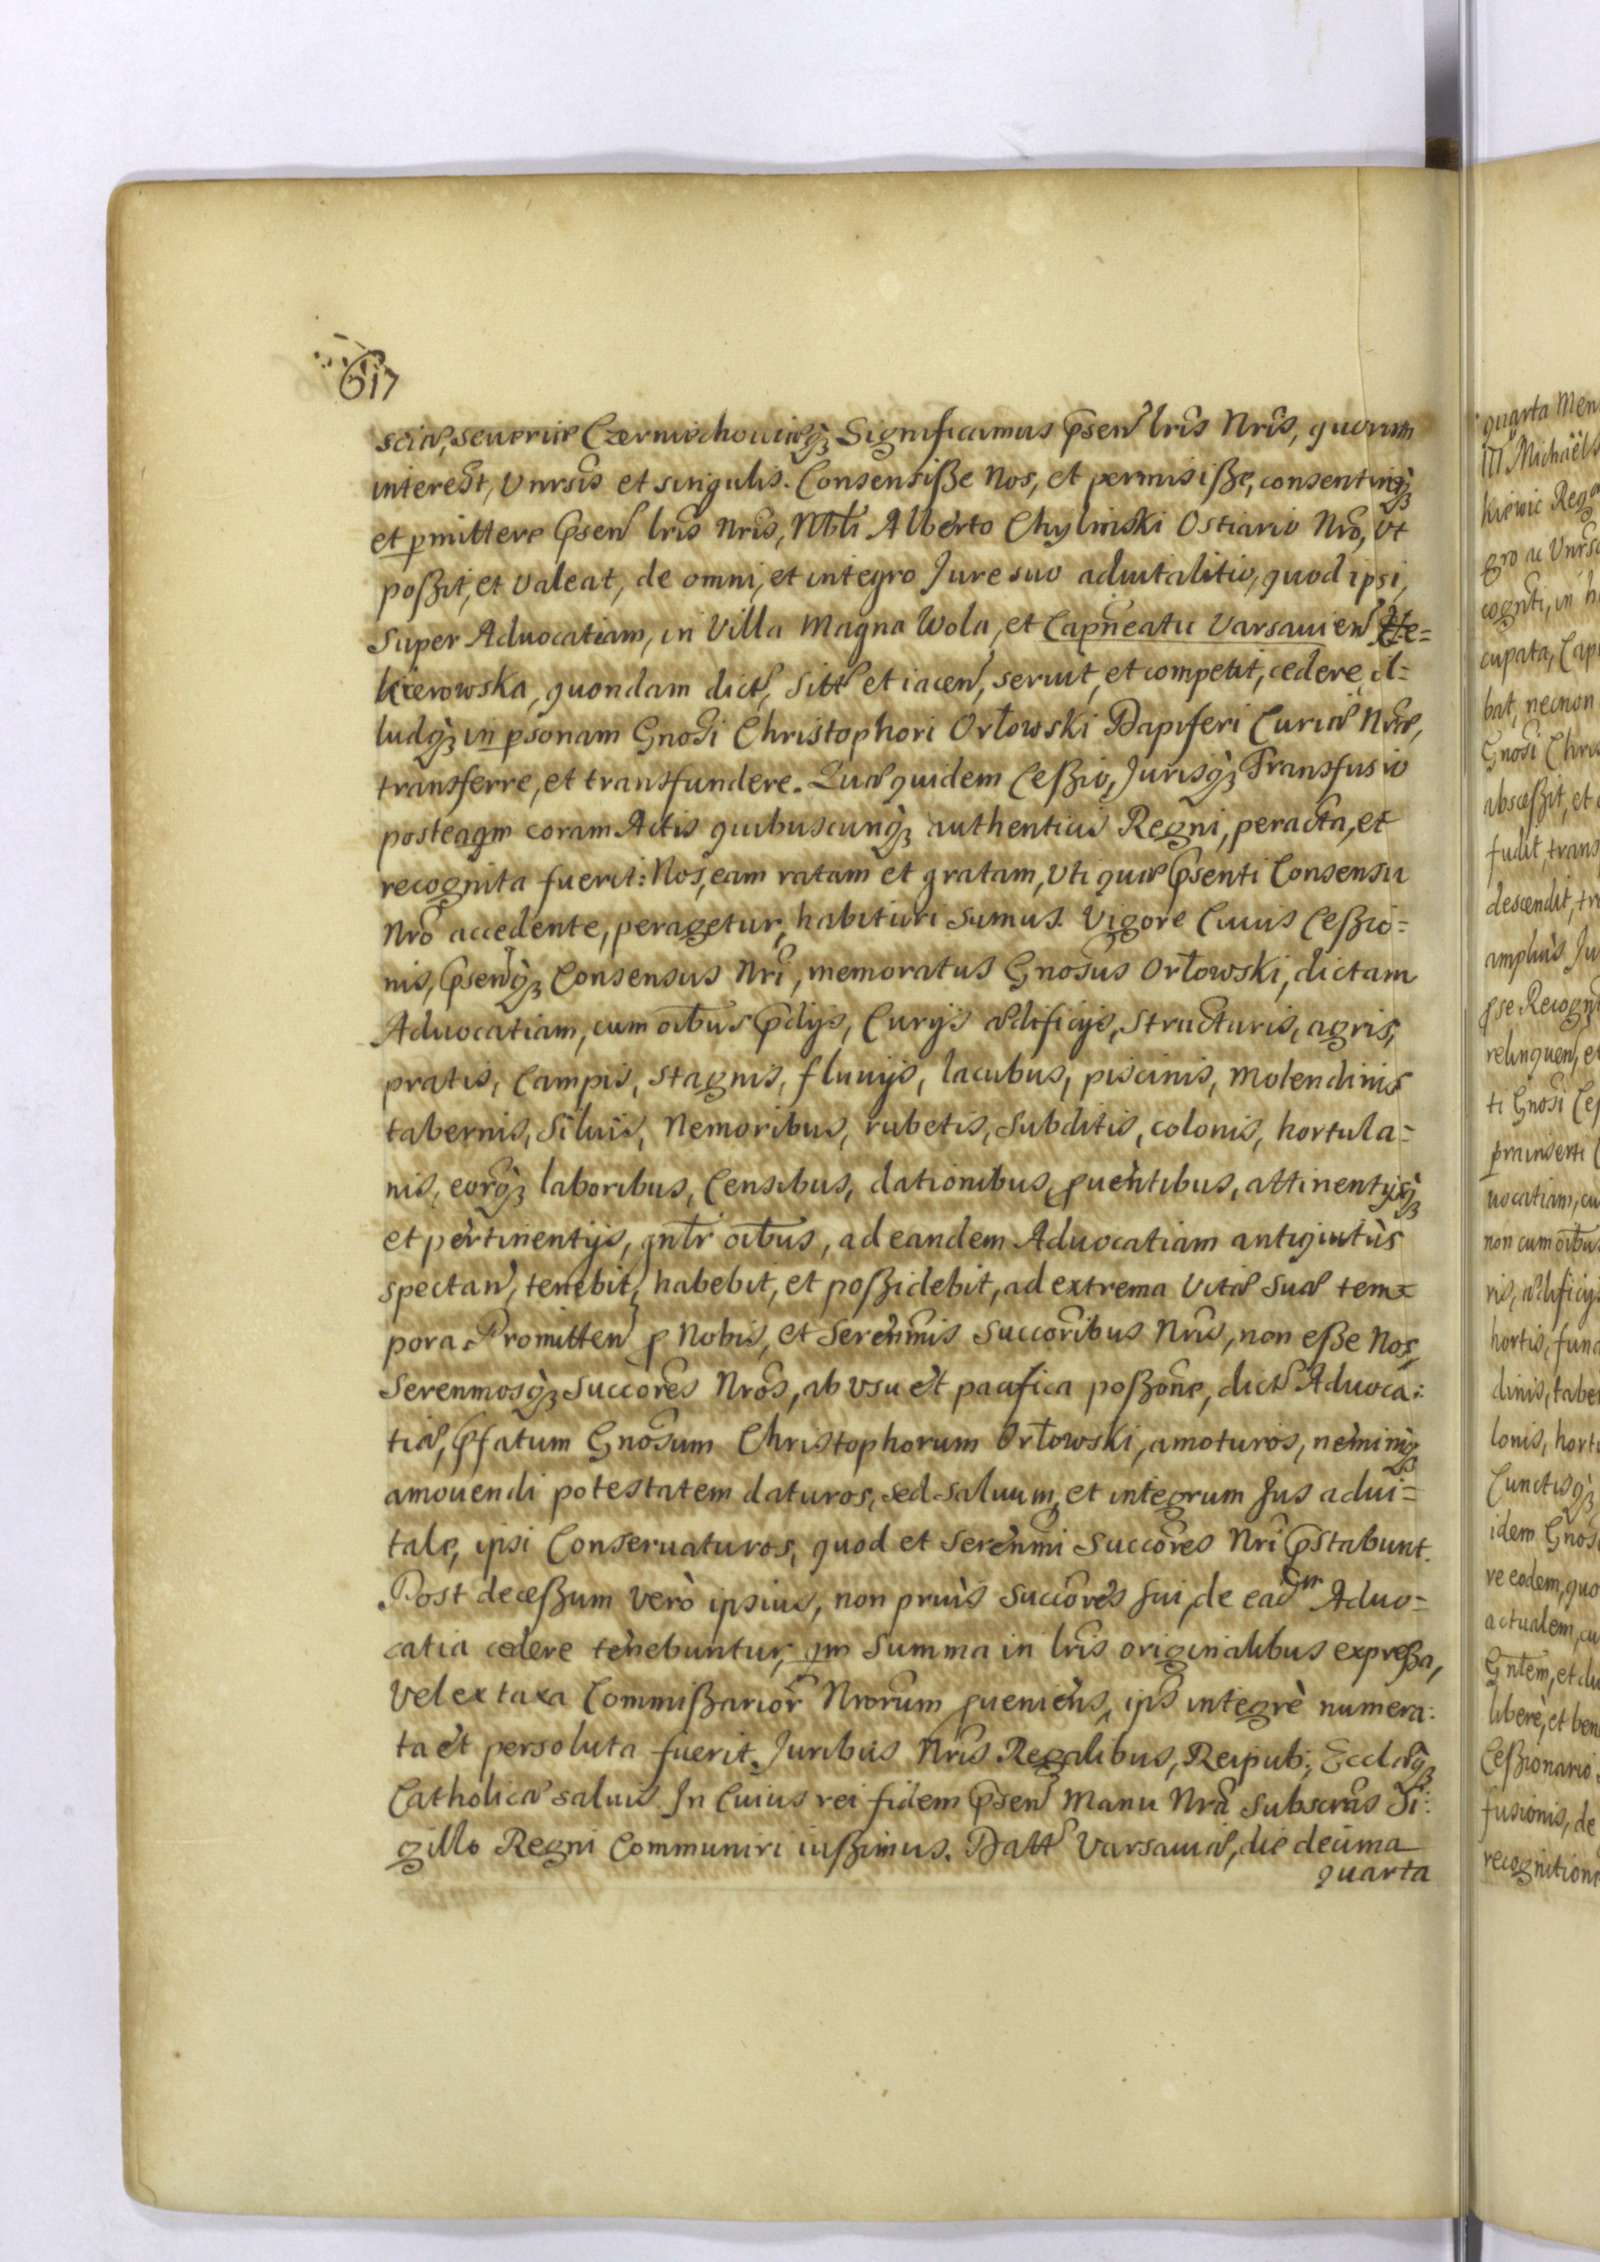 617
sciæ, Seueriæ Czerniechouiæq́ꝫ Significamus p̃sen̛ lrĩs Nrĩs, quorum
interest, Vnrsĩs et singulis. Consensiße Nos, et permisiße, consentireq́ꝫ
et pmittere p̃sen̛ lrĩs Nrĩs, Nbl̃i Alberto Chylinski Ostiario Nrõ, vt
poßit, et valeat, de omni, et integro Jure suo aduitalitio, quod ipsi,
Super Aduocatiam, in Villa Magna Wola, et Capn̄eatu Varsauien̛
kierowska, quondam dict̛, Sitt̛ et iacen̛, seruit, et competit, cedere, il=
ludq́ꝫ in psonam Gnosi Christophori Orłowski Dapiferi Curiæ Nræ,
transferre, et transfundere. Quæ quidem Ceßio, Jurisq́ꝫ Transfusio
posteaqm coram Actis quibuscunq́ꝫ authenticis Regni, peracta, et
recognita fuerit: Nos, eam ratam et gratam, Vti quæ p̃senti Consensu
Nrõ accedente, peragetur, habituri sumus. Vigore Cuius Ceßio=
nis, p̃sen̛q́ꝫ Consensus Nrĩ, memoratus Gnosus Orłowski, dictam
Aduocatiam, cum oib̃us p̃dijs, Curijs ædificijs, structuris, agris,
pratis, Campis, stagnis, fluuijs, lacubus, piscinis, molendinis
tabernis, Siluis, Nemoribus, rubetis, Subditis, colonis, hortula=
nis, eorq́ꝫ laboribus, Censibus, dationibus, puentibus, attinentijsq́ꝫ
et pertinentijs, gntr̃ oib̃us, ad eandem Aduocatiam antiquitùs
spectan̛, tenebit, habebit, et poßidebit, ad extrema Vitæ Suæ tem=
pora. Promitten̛ p Nobis, et Serenmis Succorĩbus Nrĩs, non eße Nos,
Serenmosq́ꝫ Succorẽs Nrõs, ab vsu et pacifica poßone, dict̛ Aduoca:
tiæ, p̃fatum Gnosum Christophorum Orłowski, amoturos, neminiq́ꝫ
amouendi potestatem daturos, sed saluum, et integrum Jus adui=
tale, ipsi Conseruaturos, quod et Serenmi Succorẽs Nrĩ p̃stabunt.
Post deceßum verò ipsius, non priùs Succorẽs sui, de eadm Aduo=
catia cedere tenebuntur, qm Summa in lrĩs originalibus expreßa,
Vel ex taxa Commißarior̃ Nrorum pueniens, ips̛ integrè numera:
ta et persoluta fuerit. Juribus Nrĩs Regalibus, Reipub: Ecclæq́ꝫ
Catholicæ saluis. In Cuius rei fidem p̃sen̛ Manu Nrã Subscrãs Si:
gillo Regni Communiri iußimus. Datt̛ Varsauiæ, die decima
quarta
quarta Men
III Michaël
kiewic Reg
gro ac Vnrs
cognti, in h
cupata, Cap
bat, necnon
Gnosi Chris
abscæßit, et
fudit, trans
descendit, tr
ampliùs Ju
pse Recogn
relinquen̛, et
ti Gnosi Ceß
prainserti
uocatiam, cu
non cum oib̃us
ris, ædificijs
hortis, fund
dinis, taber
lonis, hortu
Cunctisq́ꝫ
idem Gnos
re eodem, quo
actualem, cu
Gnlẽm, et du
liberè, et ben
Ceßionario
fusionis, de
recognitione